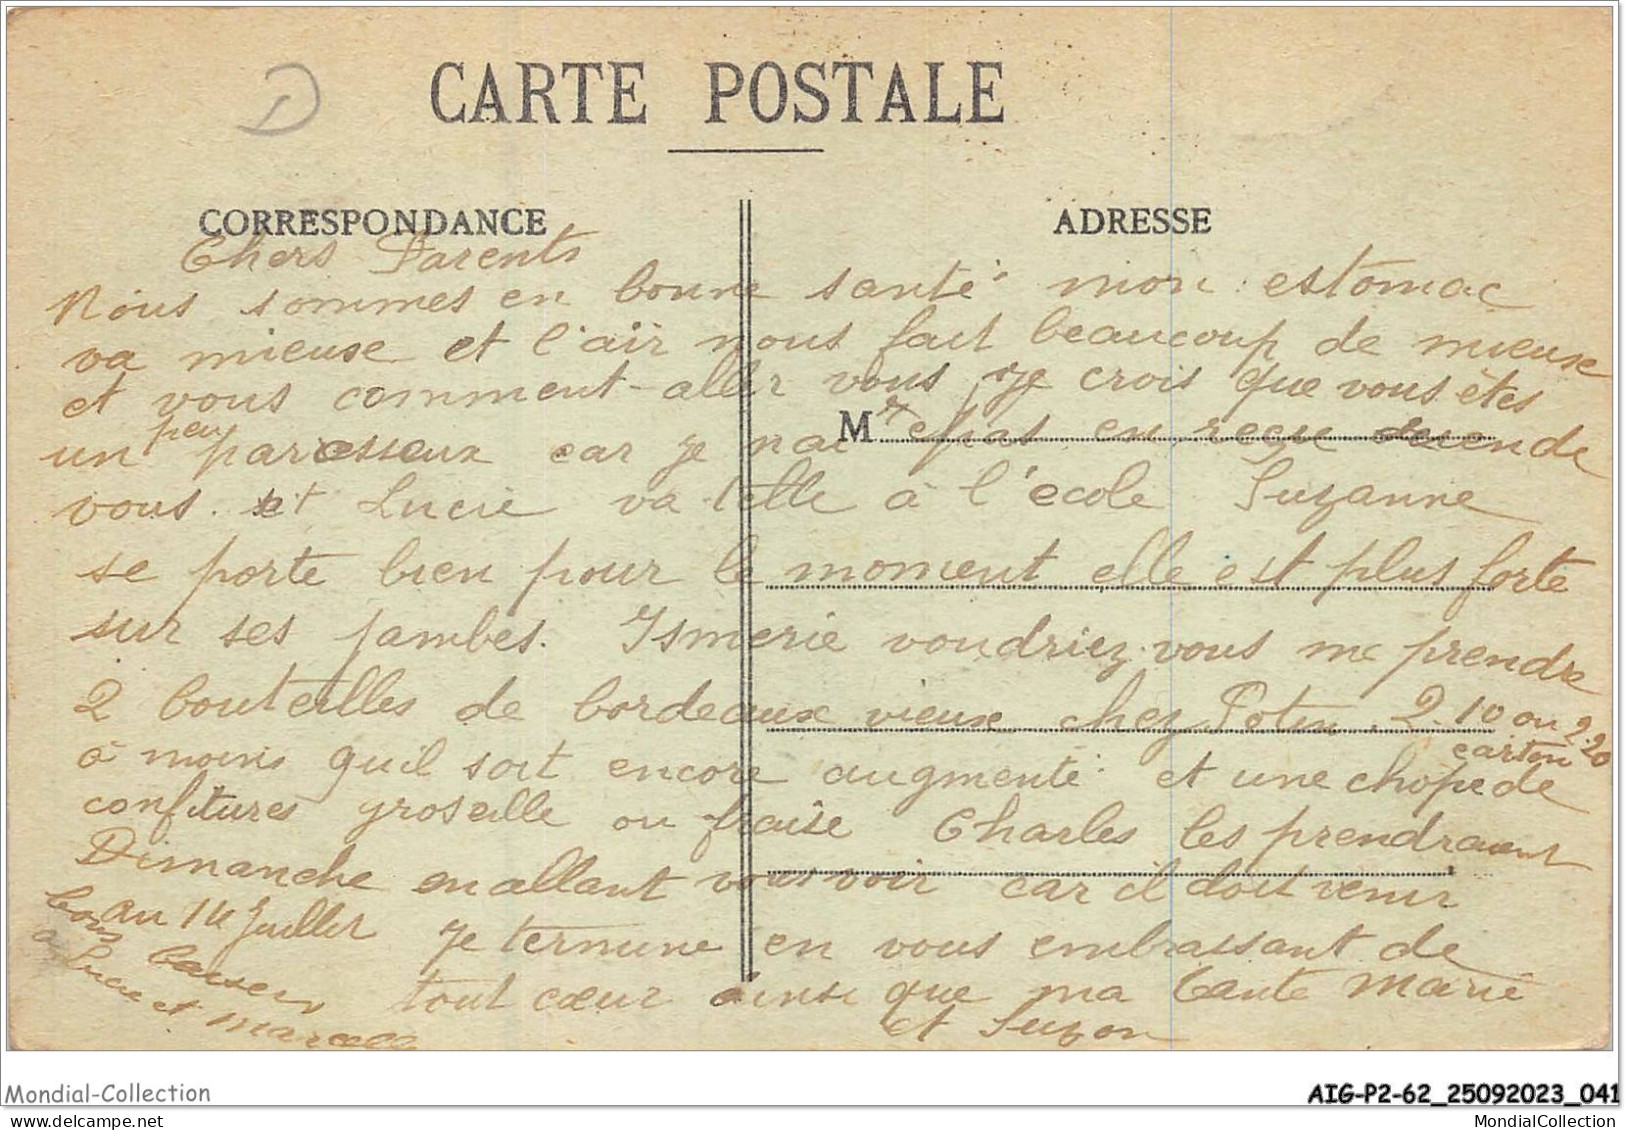 D
CARTE POSTALE
CORRESPONDANCE
ADRESSE
Chers Parents
Nous sommes en bonne santé mon estomac
va mieuse et l'air nous fait beaucoup de mieuse
et vous comment-aller vous je crois que vous êtes
un peu paresseux car je nai pas en reçu de
M
vous. et Lucie va telle à l'école Suzanne
se porte bien pour le moment elle est plus forte
sur ses jambes. Ismerie voudriez-vous me prendre
2 bouteilles de bordeaux vieuse chez Potin. 2.10 ou 2.20
à moins quil soit encore augmenté et une chope de
carton
confitures groseille ou fraise Charles les prendraient
Dimanche en allant vous voir car il doit venir
au 14 Juillet je termine en vous embrassant de
tout cœur ainsi que ma tante Marie
et Suzon
bons baisers
à Lucie et Marcelle
Mondial-Collection
AIG-P2-62_25092023_041
MondialCollection